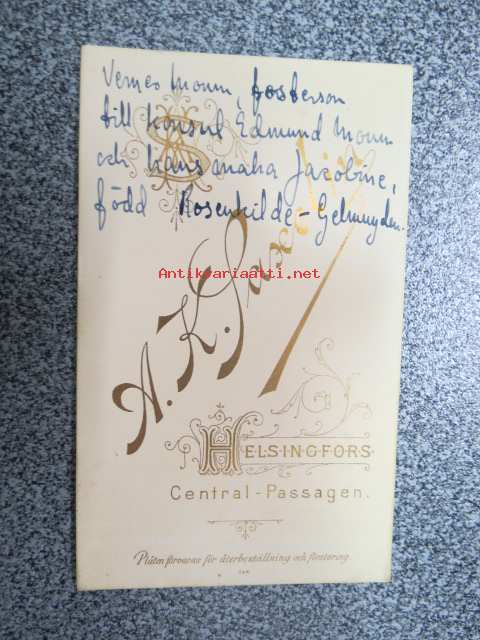 Verner Monn, fosterson
till konsul Edmund Monn
och hans maka Jacobine,
född Rosenkilde-Gelmuyden.
Antikvariaatti.net
A. K.
HELSINGFORS
Central-Passagen.
Plåten förvaras för återbeställning och förstoring